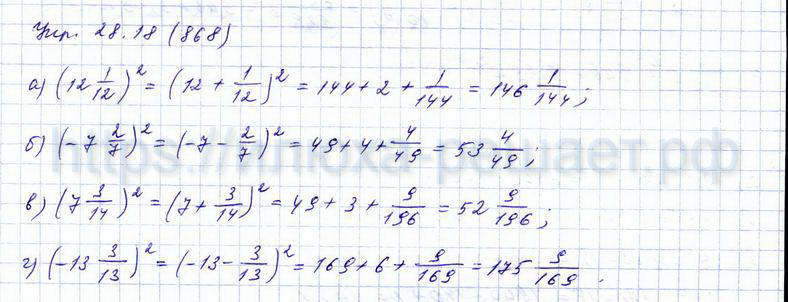 Упр. 28.18 (868)
а) (12 1/12)² = (12 + 1/12)² = 144 + 2 + 1/144 = 146 1/144;
б) (-7 2/7)² = (-7 - 2/7)² = 49 + 4 + 4/49 = 53 4/49;
в) (7 3/14)² = (7 + 3/14)² = 49 + 3 + 9/196 = 52 9/196;
г) (-13 3/13)² = (-13 - 3/13)² = 169 + 6 + 9/169 = 175 9/169.